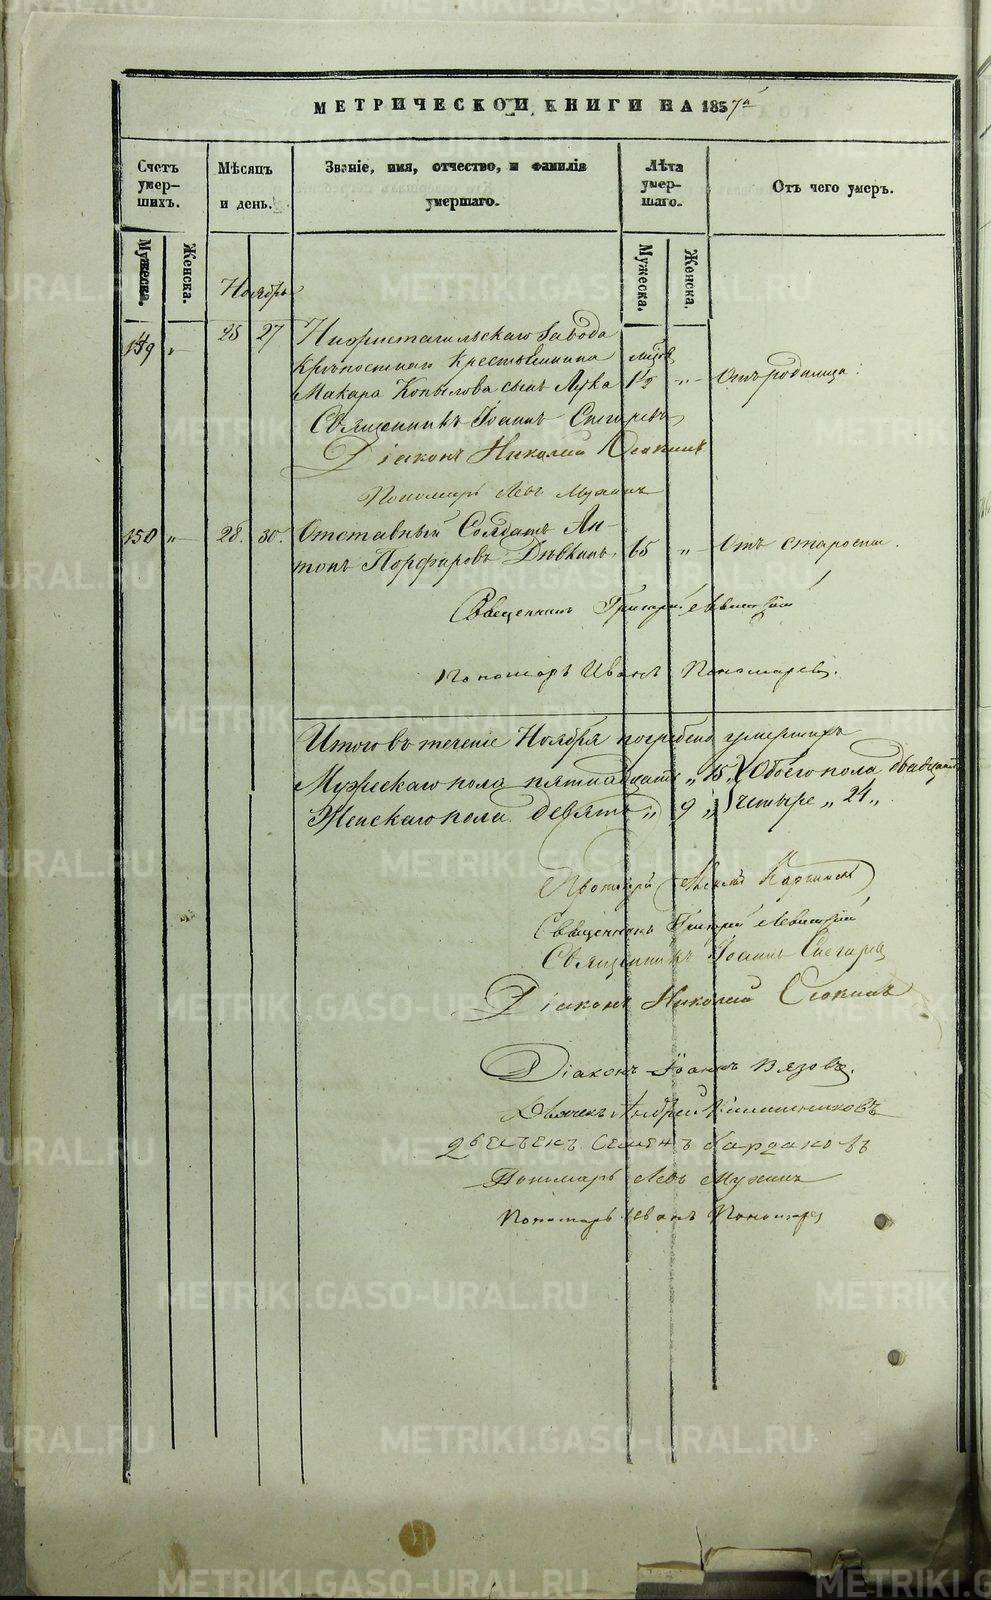 МЕТРИЧЕСКОЙ КНИГИ НА 1857 а
Счетъ умер- шихъ.
Мѣсяцъ и день.
Званіе, имя, отчество, и фамилія умершаго.
Лѣта умер- шаго.
Отъ чего умеръ.
Мужеска.
Женска.
Мужеска.
Женска.
Ноябрь
149 „ 25 27 Нижнетагильскаго Завода
Крѣпостнаго Крестьянина
Макара Копылова сынъ Лука 1½ „ Отъ родимца.
Священникъ Іоаннъ Снегиревъ
Діаконъ Николай
Пономарь Левъ Мухинъ
150 „ 28. 30. Отставный Солдатъ Ан-
тонъ Порфировъ Дѣвкинъ. 65 „ Отъ старости.
Священникъ Григорій Левитскій
Пономарь Иванъ Пономаревъ.
Итого въ теченіе Ноября погребено умершихъ
Мужескаго пола пятнадцать „15„ Обоего пола двадцать
Женскаго пола девять „9„ четыре „24„.
Протоіерей Алексѣй Карпинскій
Священникъ Григорій Левитскій
Священникъ Іоаннъ Снегирев
Діаконъ Николай
Діаконъ Іоаннъ Вязовъ.
Дьячекъ Андрей Калашниковъ
Семенъ
Пономарь Левъ Мухинъ
Пономарь Иванъ Пономарев
METRIKI.GASO-URAL.RU